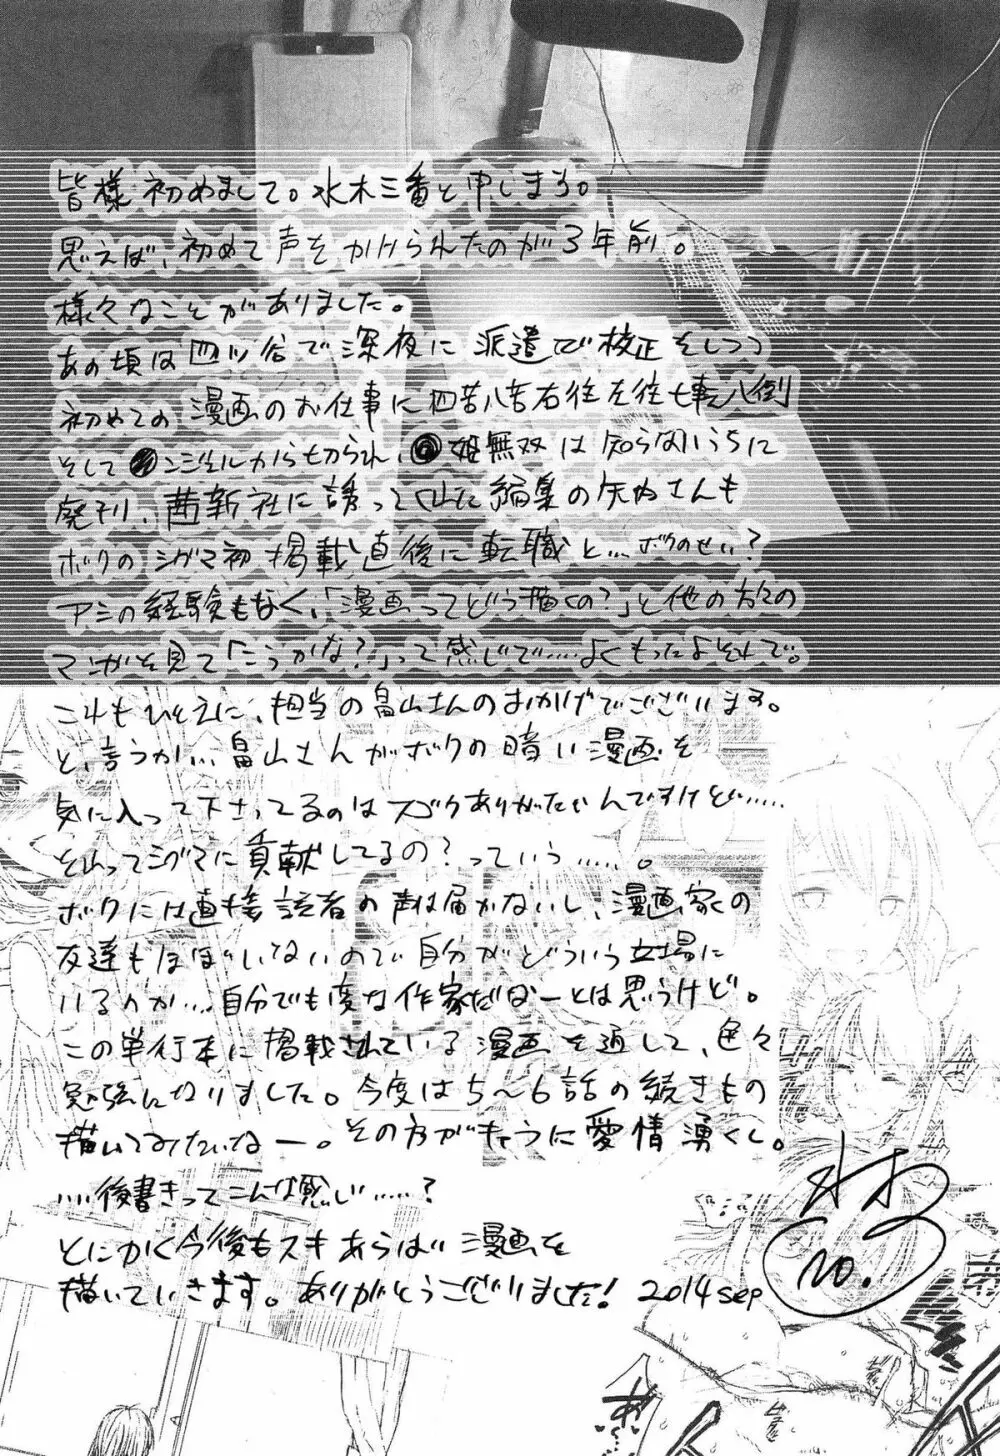 皆様初めまして。水木三番と申します。
思えば、初めて声をかけられたのが3年前。
様々なことがありました。
あの頃は四ツ谷で深夜に派遣で校正をしつつ
初めての漫画のお仕事に四苦八苦右往左往七転八倒
そして●ンジェルから切られ、●姫無双は知らないうちに
廃刊、茜新社に誘ってくれた編集の矢内さんも
ボクのシグマ初掲載直後に転職と…ボクのせい？
アシの経験もなく、「漫画ってどう描くの？」と他の方々の
マンガを見て「こうかな？」って感じで……よくもったよそれで。
これもひとえに、担当の畠山さんのおかげでございます。
と、言うか…畠山さんがボクの暗い漫画を
気に入って下さってるのはスゴクありがたいんですけど……
それってシグマに貢献してるの？っていう……。
ボクには直接読者の声は届かないし、漫画家の
友達もほぼいないので自分がどういう立場に
いるのか…自分でも変な作家だなーとは思うけど。
この単行本に掲載されている漫画を通して、色々
勉強になりました。今度は5～6話の続きもの
描いてみたいなー。その方がキャラに愛情湧くし。
……後書きってこんな感じ……？
とにかく今後もスキあらば漫画を
描いていきます。ありがとうございました！ 2014 sep
水木
NO.